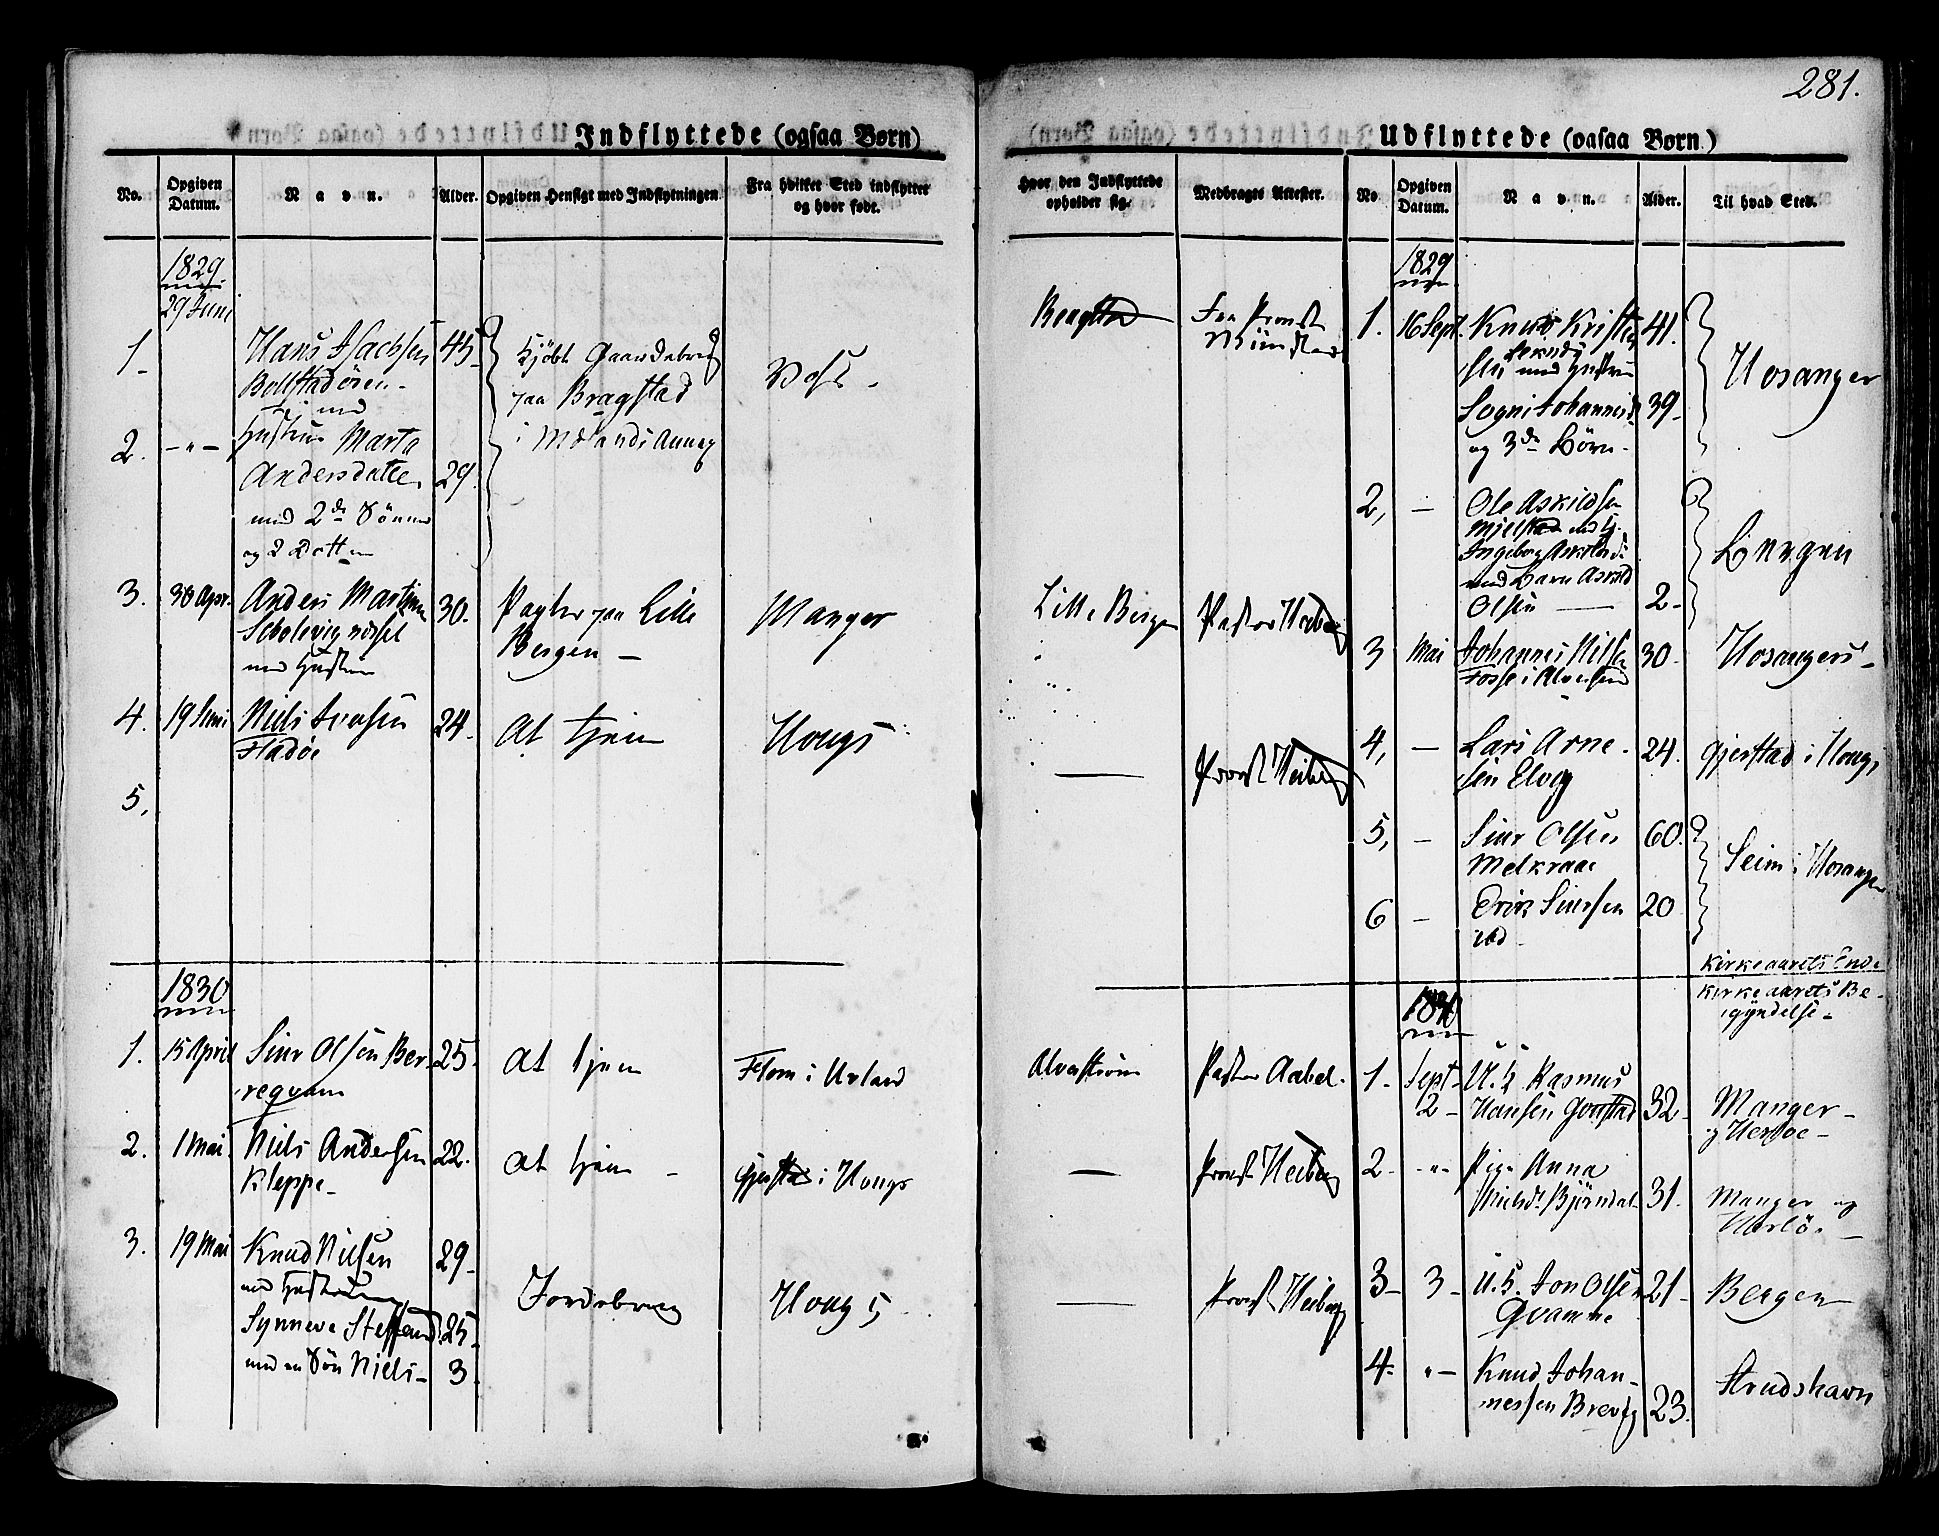 281.
Indflyttede (ogsaa Børn)
No.
Opgiven Datum.
Navn.
Alder.
Opgiven Hensigt med Indflytningen
Fra hvilket Sted indflytter og hvor født.
1829
29 Juni
1.
Hans Isachsen
Bolstadøren
45
Kjøbt Gaardebrug
paa Bragstad
i Mælands Annex
Voss
2.
Hustrue Marta
Andersdatter
29.
med 2de Sönner
og 2 Døttre
3.
30 Apr.
Anders Martin
med Hustru
30.
Pagter paa Lille
Bergen
Manger
4.
19 Juni
Niels Iversen
Fladöe
24.
At tjene
Hougs
5,
1830
1.
15 April
Siur Olsen Ber-
requam
25.
At tjene
Flom i Urland
2.
1 Mai
Niels Andersen
Kleppe
22.
At tjene
Gjerstad i Hougs
3.
19 Mai
Knud Nielsen
med Hustrue
29
Synneve Steffensd.
25
med en Sön Niels
3
Jordebrug
Hougs
Udflyttede (ogsaa Børn)
Hvor den Indflyttede opholder sig.
Medbragte Attester.
No
Opgiven Datum.
Navn.
Alder.
Til hvad Sted.
1829
Bragstad
Fra Provst
Münster
1.
16 Sept.
Knud Kristen
med Hustrue
41.
Sogni Johannesd.
39
og 3de Börn
Hosanger
2,
Ole Askildsen
Mjelstad med H.
Ingeborg Askildsd.
med Barn Askild
Olsen
2
Bergen
Lille Bergen
Pastor Heiberg
3
Mai
Johannes Nilsen
Fosse i Alversund
30
Hosangers
Provst Heiberg
4,
Lars Arne-
sen Elvig
24.
Gjerstad i Hougs
5,
Siur Olsen
Melkraae
60.
6
Erik Siursen
ibd
20
Seim i Hosanger
Kirkeaarets Ende
Kirkeaarets Be-
gyndelse
1830
Alverström
Pastor Aabel.
1.
Sept
2
U. K. Rasmus
Hansen Gaustad
32
Manger
og Herløe
Provst Heiberg
2
Pige Anna
Nielsdt. Björndal
31.
Manger og
Herlöe
Provst Heiberg
3
3
U. K. Jon Olsen
Qvamme
21
Bergen
4.
Knud Johan-
nessen Brevig
23.
Strudshavn